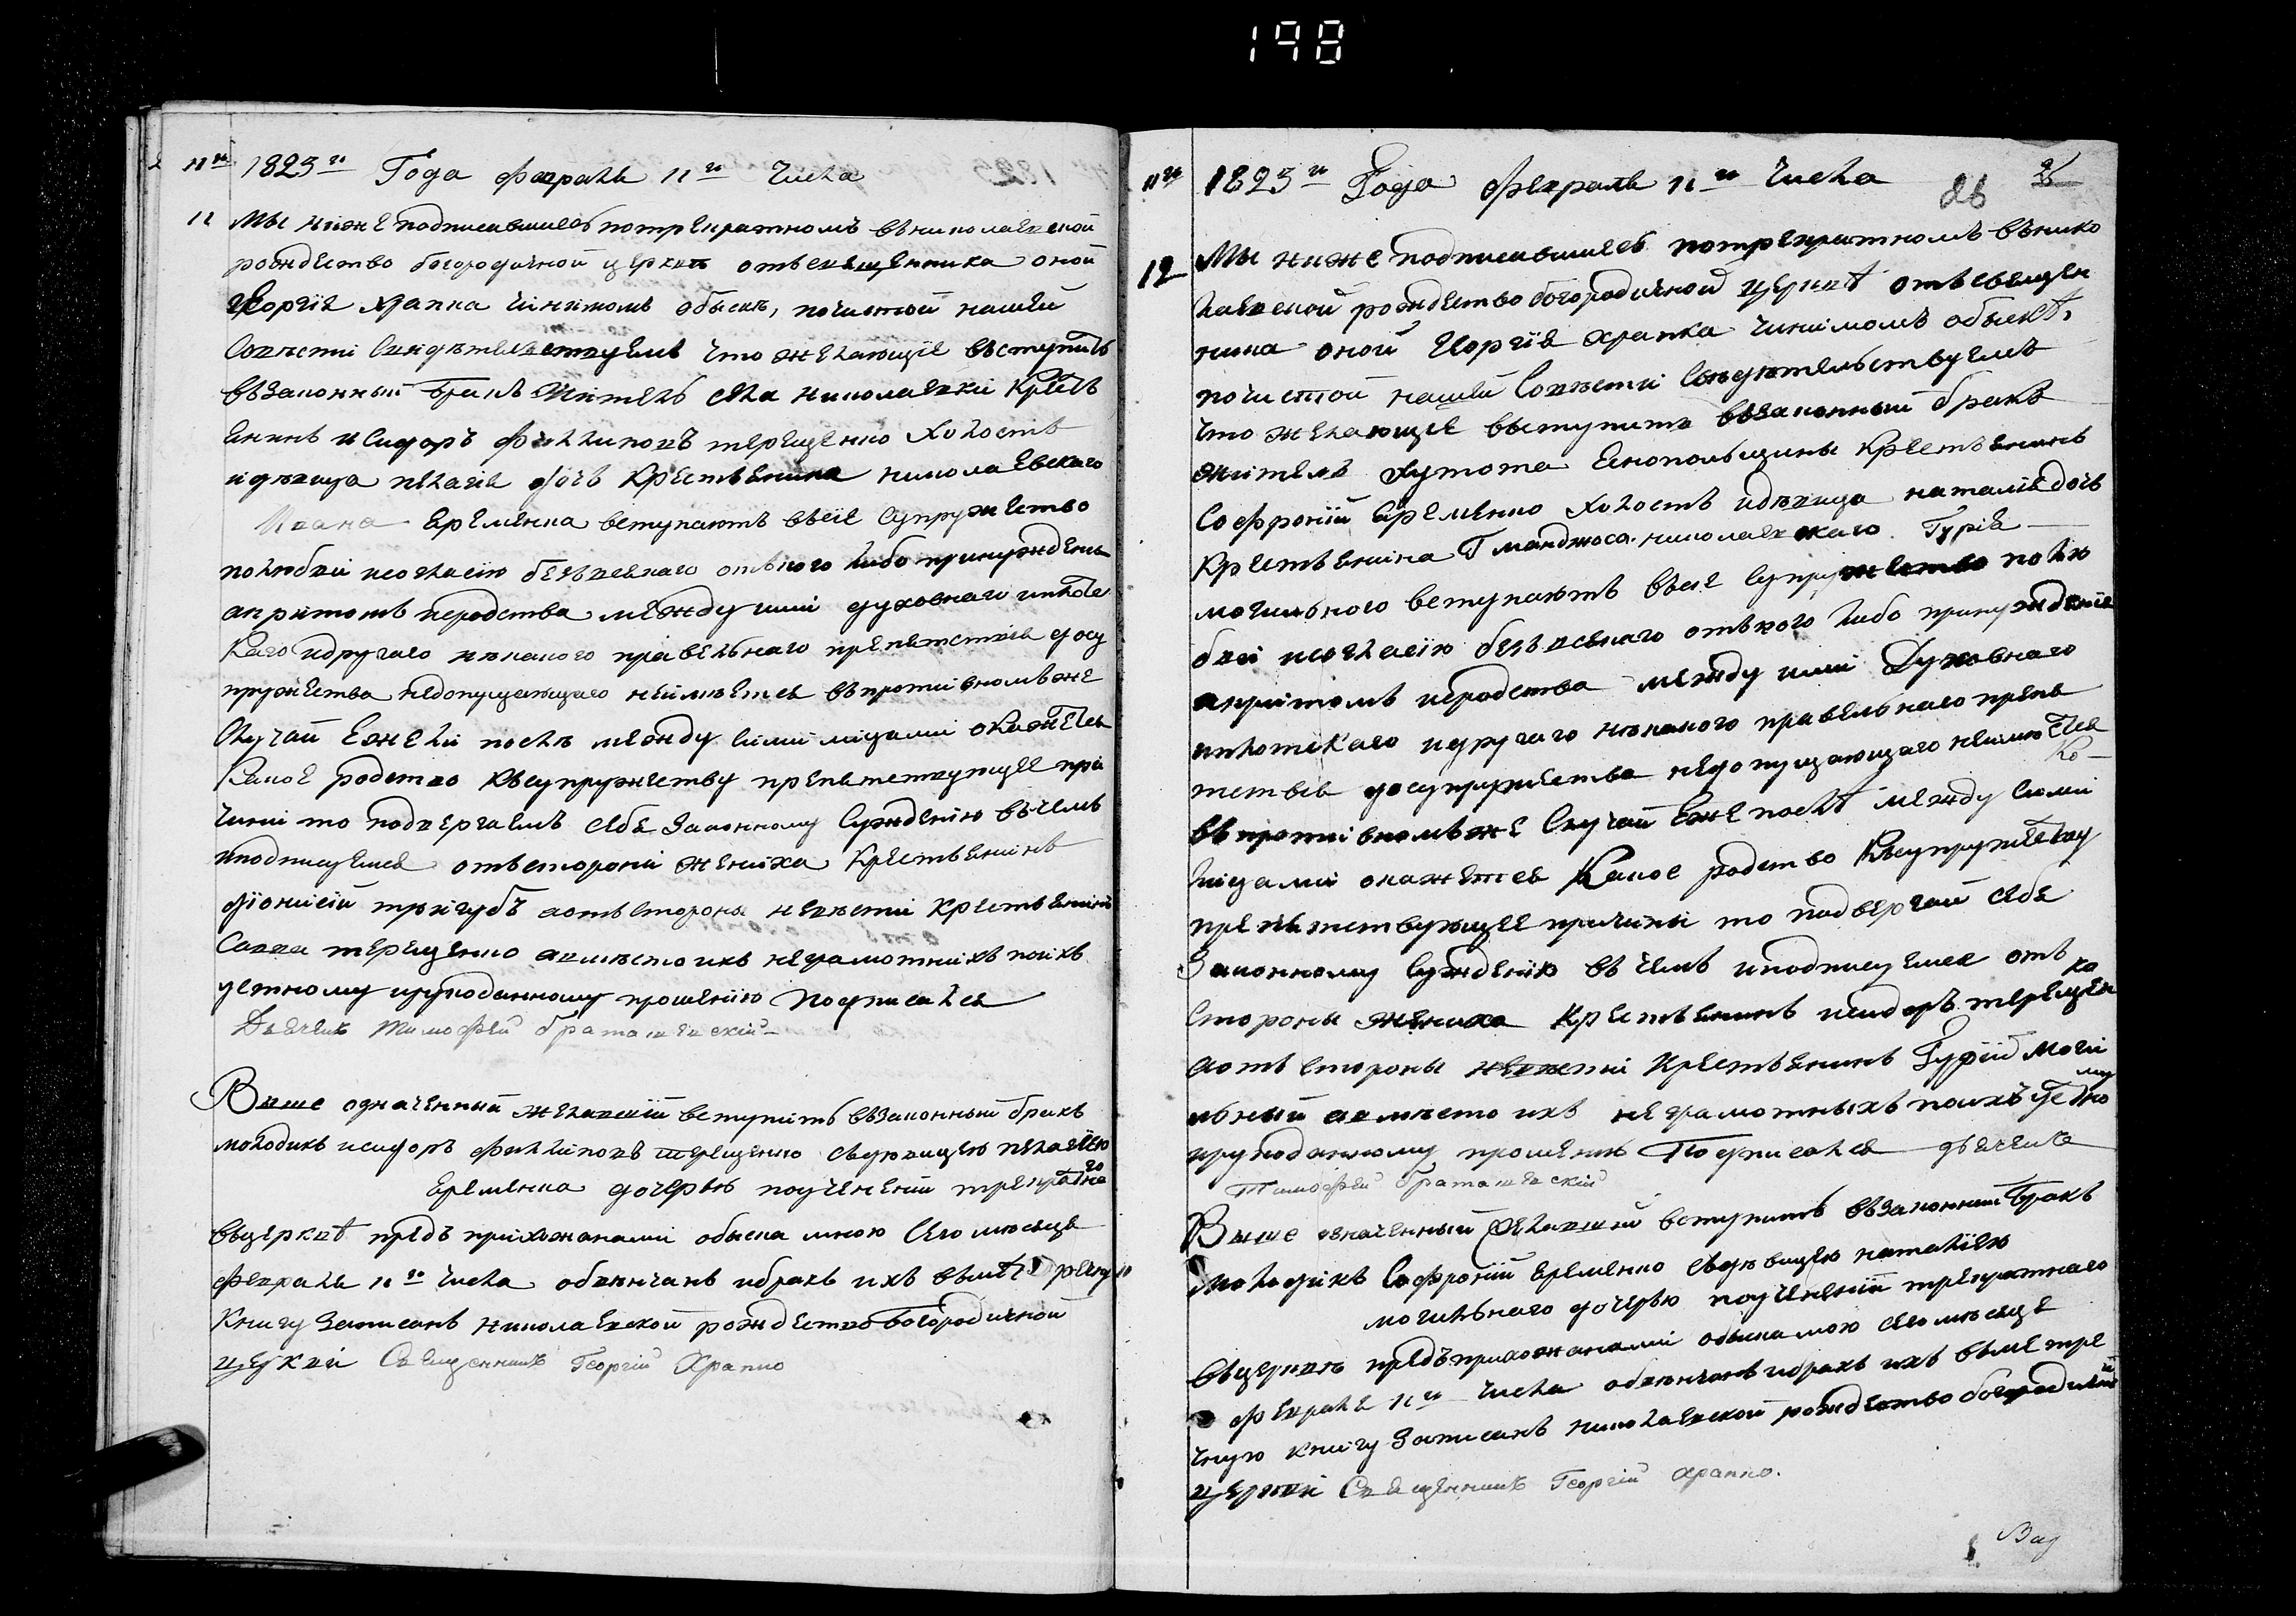 198
11го 1825го Года февраля 11го числа
11 Мы ниже подписавшиеся потрекратномъ вниколаевской
рождество богородичной церкви отъсвященника оной
Георгія Храпка чинімомъ обыскъ, почистой нашей
Совѣсті Свидѣтелствуемъ что желающіе вступить
взаконный Бракъ Жітель села николаевки Крестъ
янинъ исидоръ филліповъ терещенко Холостъ
идѣвица пелагія дочь Крестьянина николаевскаго
Ивана Еременка вступаютъ въсіе Супружество
полюбві исогласію безвсякаго отъкого лібо принужденія
апрітомъ неродства между імі духовнаго иплотс
Каго идругаго нікакого правельнаго препятствія досу
пружества недопущающаго неімѣется впротівномъ же
Случаи Ежелі послѣ между сімі ліцамі окажется
Какое родство Ксупружеству препятствующее при
чині то подвергаемъ себя Законному Сужденію вчемъ
иподписуемся отъстороні женіха Крестьянінъ
діонисій тригубъ аотъстороны невѣсті Крестьянінъ
Савва терещенко авмѣсто ихъ неграмотныхъ поихъ
устному ирукоданному прошенію подписался
Дьячекъ Тимофей браташевскій
Выше означенный желавшій вступить взаконный бракъ
молодикъ исидоръ филліповъ терещенко сдевицею пелагіею
Еременка дочерью поученеій трекратнаго
вцерквѣ предъ прихожанамі обыска мною Сего мѣсяца
февраля 11го числа обвѣнчанъ ибракъ ихъ въметрекую
Книгу Записанъ николаевской рождество богородичной
церкви Священникъ Георгій Храпко
11го 1825го Года февраля 11го числа 26
12 Мы ниже подписавшиеся потрекратномъ внико
лаевской рождество богородичной церквѣ отъсвящен
ника оной Георгія Храпка чинімомъ обыскѣ,
почистой нашей Совѣсті Свидѣтельствуемъ
что желающіе вступить взаконный бракъ
жітель хутора Крестьянинъ
Софроній Еременко Холостъ идѣвица наталія дочь
Крестьянина Гманджоса николаевскаго Гурія
могильного вступаютъ въсіе Супружество полю
бві исогласію безвсякаго отъкого лібо принужденія
апрітомъ неродства между імі Духовнаго
иплотскаго идругаго нікакого правельнаго препя
тствія досупружества недопущающаго неімѣется
Ко-
впротівномъ же Случаи Еже послѣ между сімі
ліцамі окажется Какое родство Ксупружеству
препятствующее причины то подвергаи себя
Законному Сужденію вчемъ иподписуемся отъ
стороны жениха Крестьянинъ исидоръ терещенка
аотъ стороны невѣсті Крестьянинъ Гурій моги
льный авмѣсто ихъ неграмотныхъ поихъ устному
ирукоданному прошенію Подписался дьячекъ
Тимофей браташевскій
Выше означенный желавшій вступить взаконный Бракъ
молодікъ Софроній Еременко сдевицею наталіею
могильнаго дочерью поученеій трекратнаго
вцерквѣ предъ прихожанамі обыска мою сего мѣсяца
февраля 11го числа обвѣнчанъ ибракъ ихъ въметре
чную книгу Записанъ николаевской рождество богородичной
церкві Священникъ Георгій Храпко.